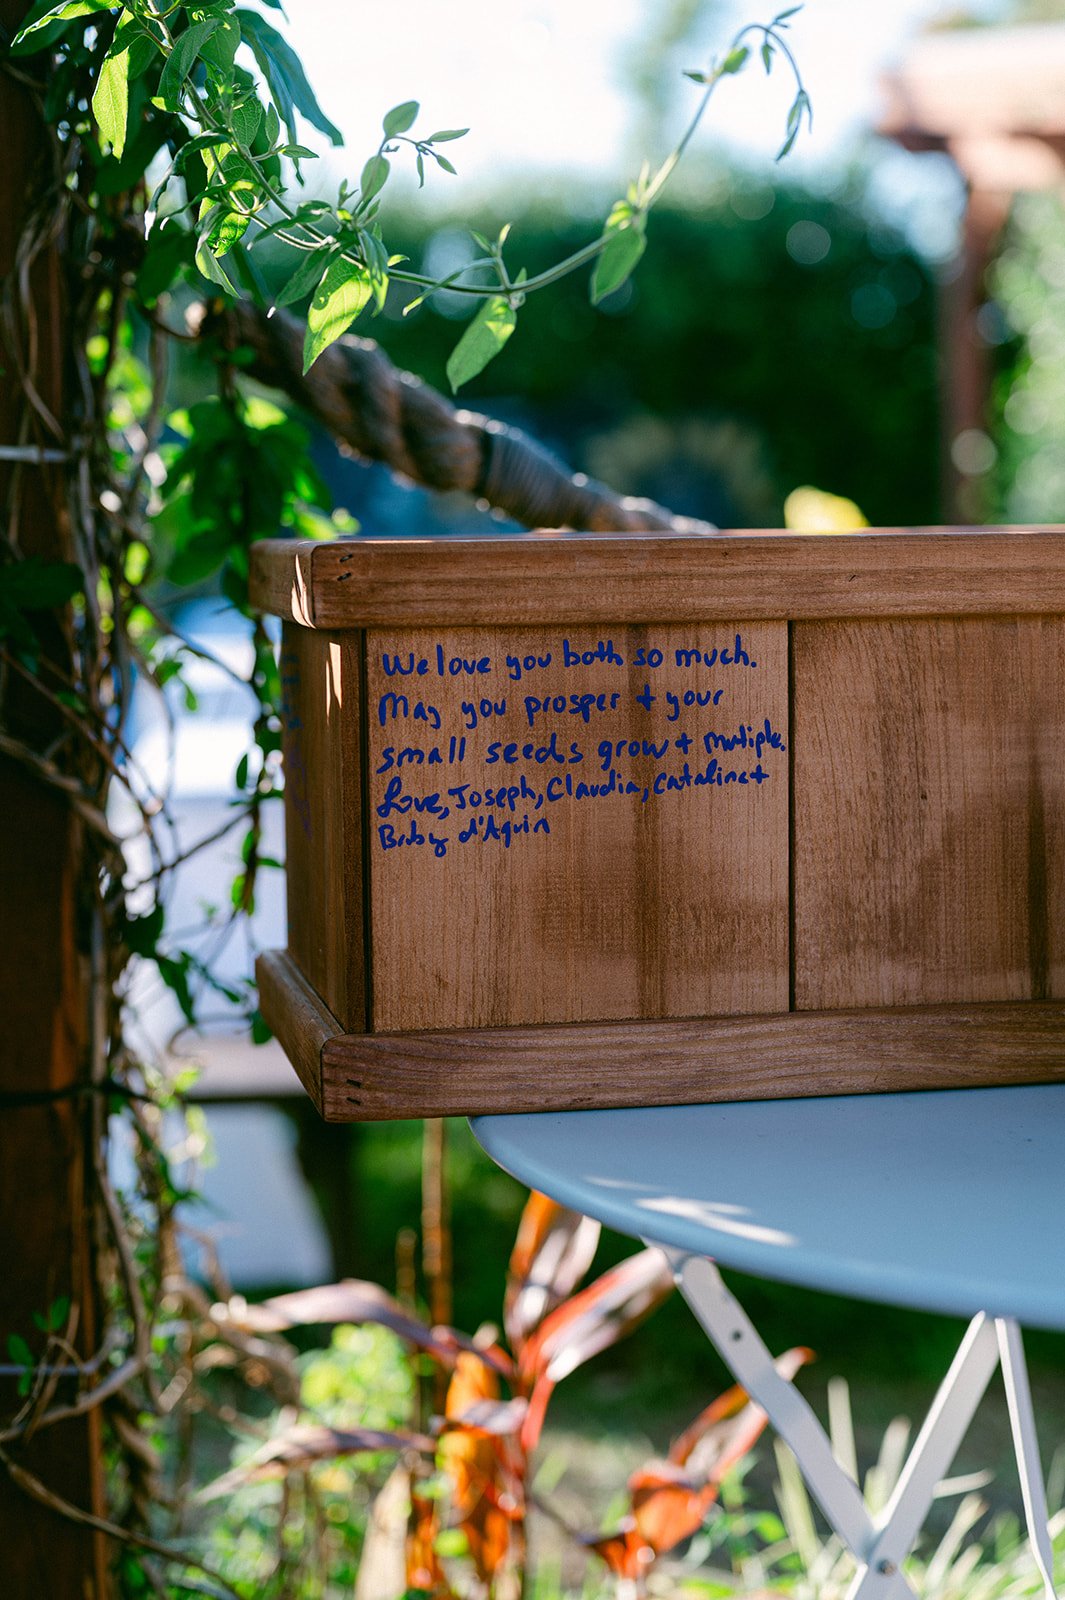 We love you both so much.
May you prosper + your
small seeds grow + multiple.
Love, Joseph, Claudia, Catalina +
Baby d'Aquin